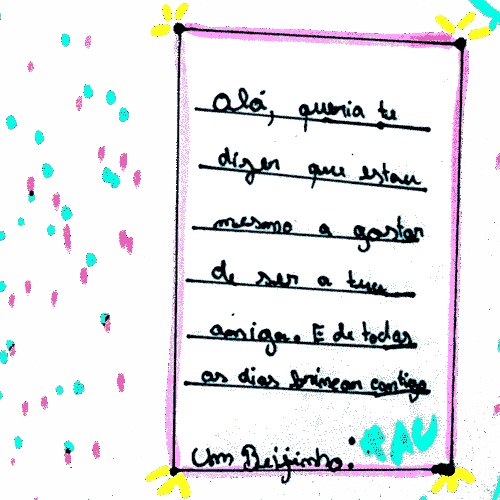 Olá, queria te
dizer que estou
mesmo a gostar
de ser a tua
amiga. E de todos
os dias brincar contigo
Um Beijinho.